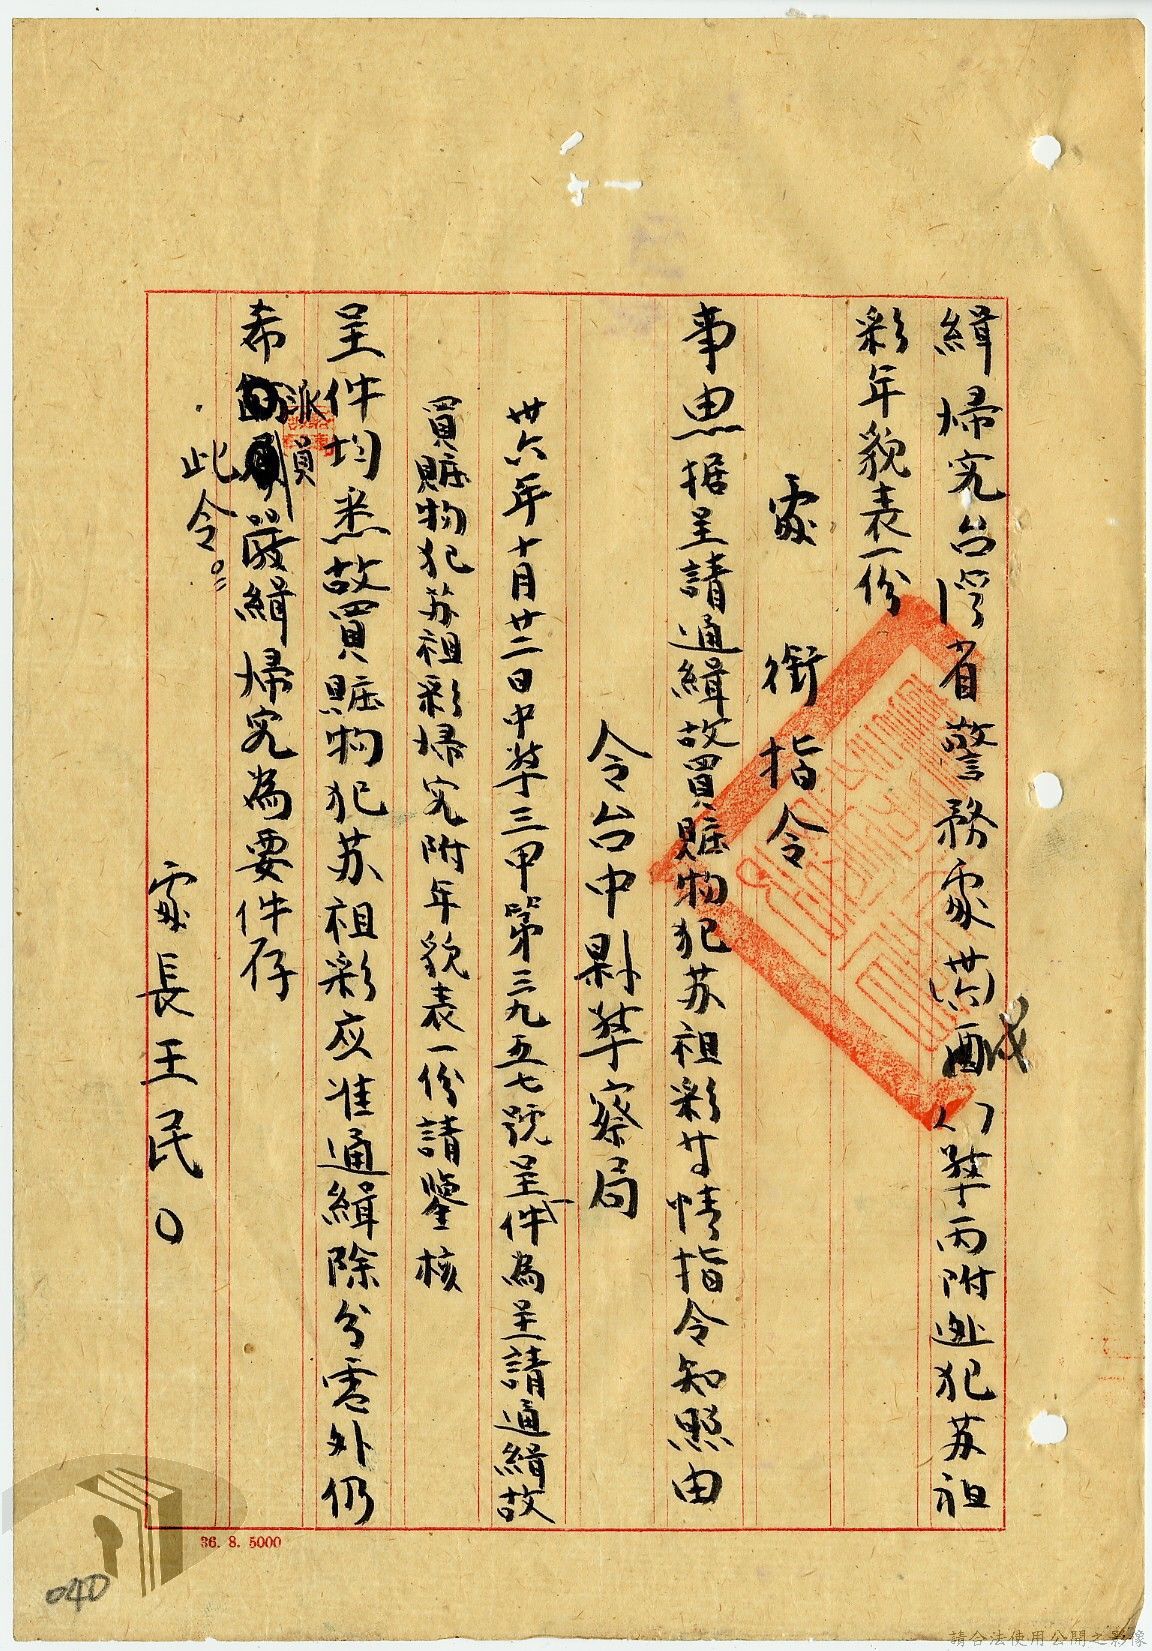 緝歸究台灣省警務處(卅六)酉 刑業丙附逃犯苏祖
彩年貌表一份
處銜指令
事由据呈請通緝故買賍物犯苏祖彩廿情指令知照由
令台中縣警察局
卅六年十月廿二日中警三甲第三九五七號呈一件為呈請通緝故
買賍物犯苏祖彩歸究附年貌表一份請鑒核
呈件均悉故買賍物犯苏祖彩应准通緝除分電外仍
希派員嚴緝歸究為要件存
此令。
處長王民〇
36. 8. 5000
040
請合法使用公開之影像